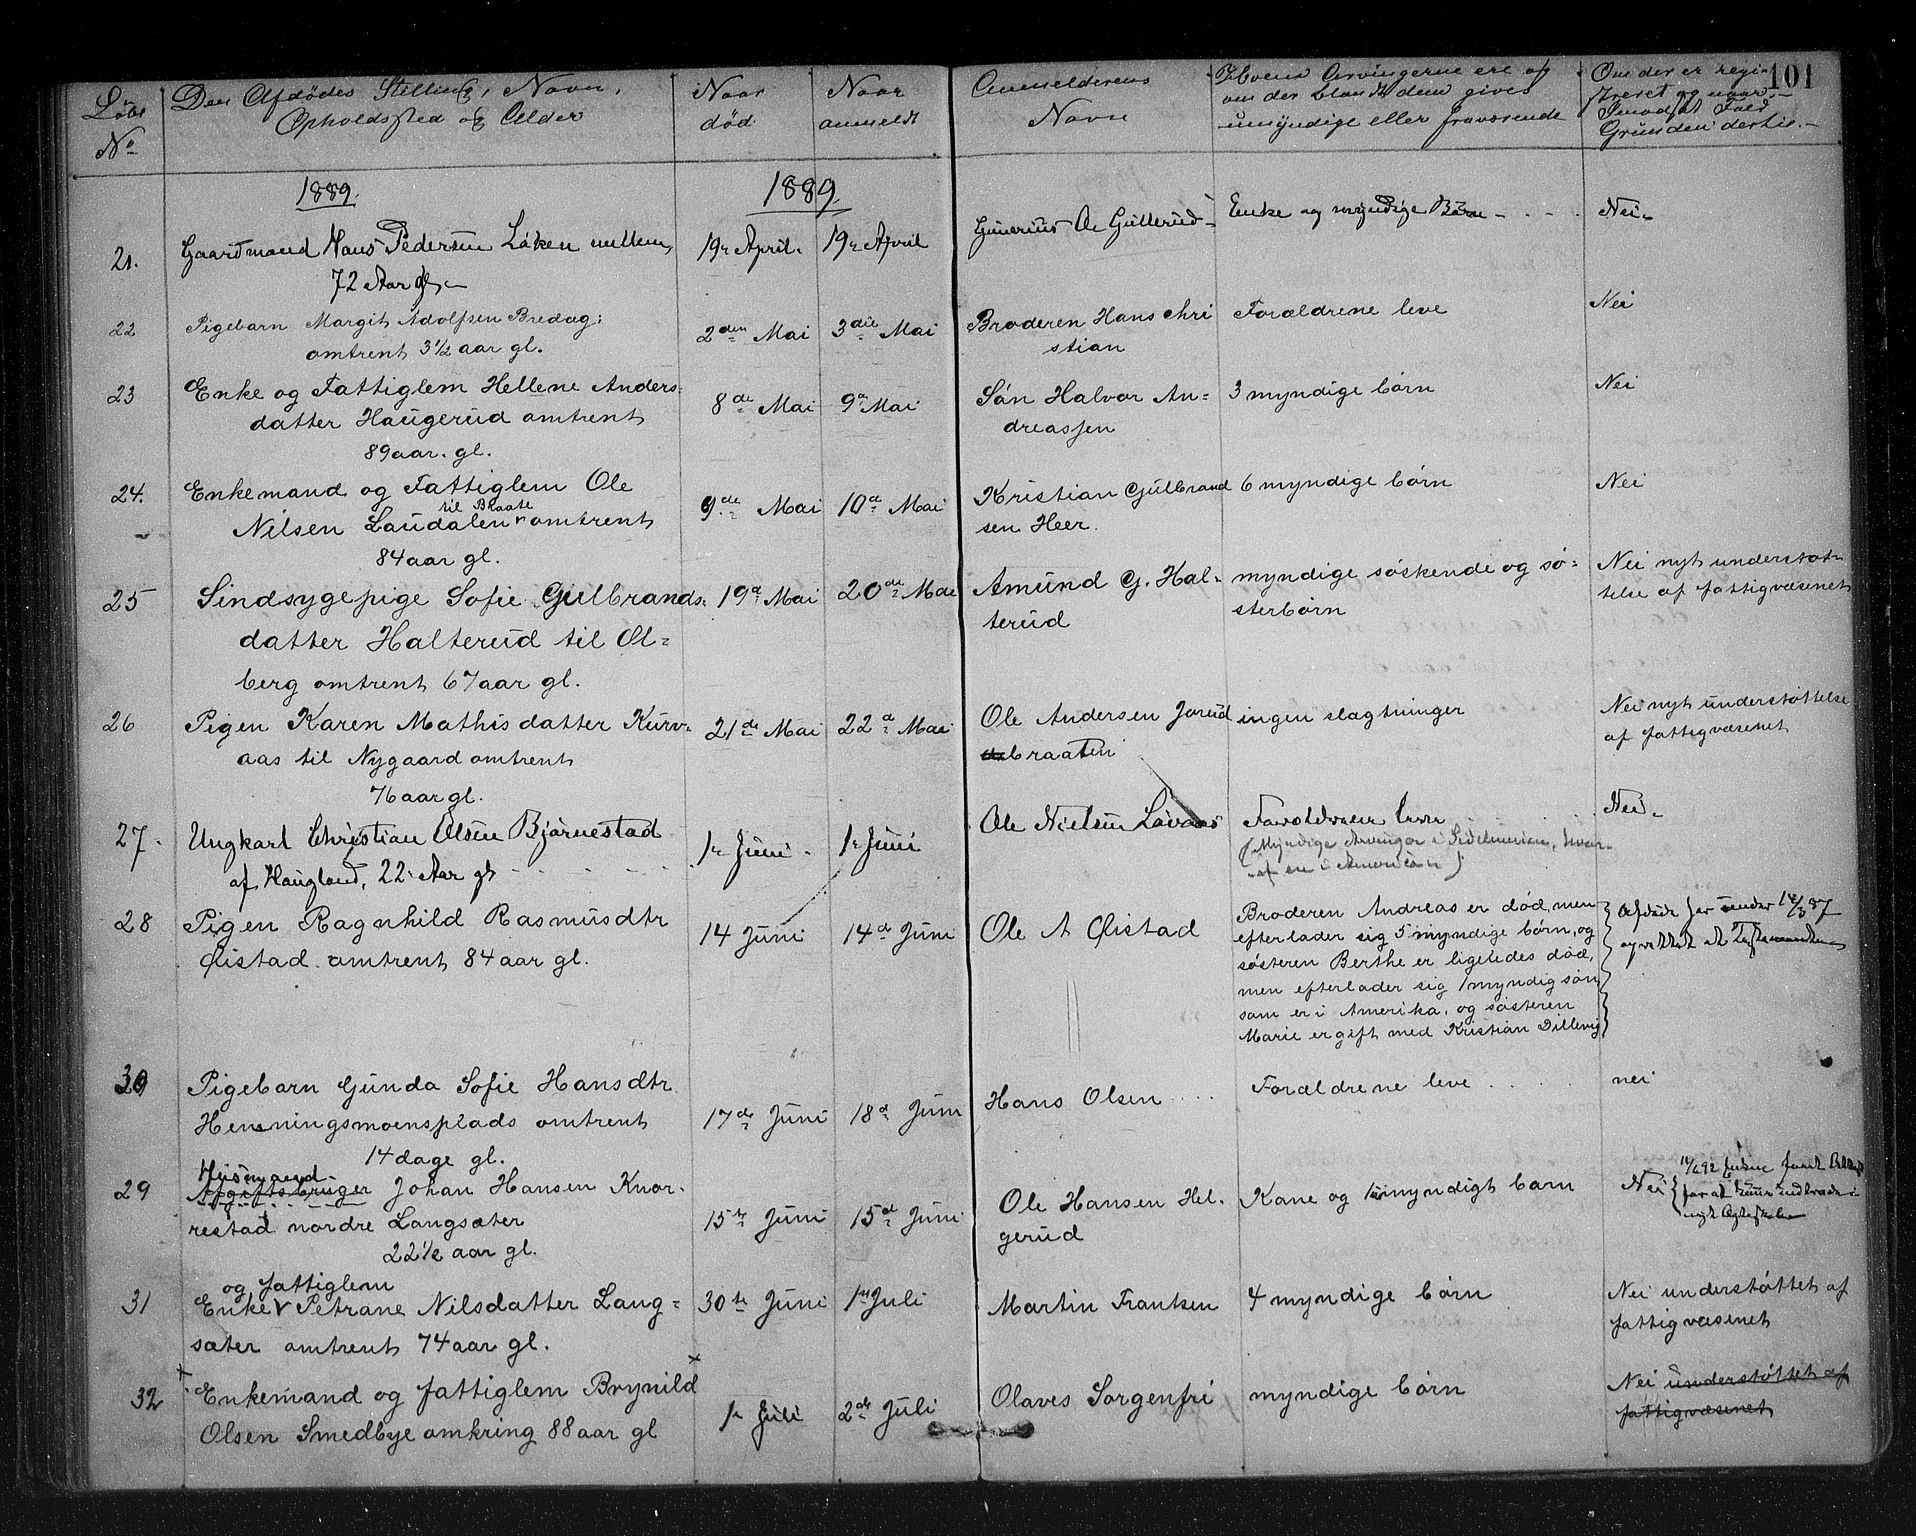 101
Løbe
No
Den Afdødes Stilling, Navn,
Opholdssted og Alder
Naar
død
Naar
anmeldt
Anmelderens
Navn
Hvem Arvingerne ere og
om der blandt dem gives
umyndige eller fraværende
Om der er regi-
streret og naar.
I modsat Fald
Grunden dertil.-
1889.
1889.
21.
Gaardmand Hans Pedersen Løken mellem,
72 Aar gl. -
19de April.
19de April
Gunerius A. Gullerud -
Enke og myndige Børn - . - .
Nei.
22
Pigebarn Margit Adolfsen Bredag;
omtrent 3½ aar gl.
2den Mai
3die Mai
Broderen Hans Chri
stian
Forældrene leve
Nei
23
Enke og Fattiglem Hellene Anders-
datter Haugerud omtrent
89 aar. gl.
8de Mai
9de Mai
Søn Halvor An-
dreassen
3 myndige børn
Nei
24.
Enkemand og Fattiglem Ole
til Braate
Nilsen Laudalen omtrent
84 aar gl.
9de Mai
10de Mai
Kristian Gulbrand
sen Heer.
6 myndige børn
Nei
25
Sindsygepige Sofie Gulbrands-
datter Halterud til Øl-
berg omtrent 67 aar gl.
19de Mai
20de Mai
Amund G. Hal-
terud
myndige søskende og sø-
sterbørn
Nei nyt understøt-
telse af fattigvæsenet
26
Pigen Karen Mathisdatter Kurv-
aas til Nygaard omtrent
76 aar gl.
21de Mai
22de Mai
Ole Andersen Jorud
braaten
ingen slægtninger
Nei nyt understøttelse
af fattigvæsenet
27.
Ungkarl Christian Olsen Bjørnestad
af Haugland, 22 Aar gl. - . - .
1ste Juni.
1ste Juni
Ole Nielsen Løvaas
Forældrene leve
(Myndige Arvinger i Sidelinien, hvor-
af en i Amerika)
Nei.
28
Pigen Ragnhild Rasmusdtr
Øistad omtrent 84 aar gl.
14 Juni
14de Juni
Ole A Øistad
Broderen Andreas er død, men
efterlader sig 5 myndige børn, og
søsteren Berthe er ligeledes død,
men efterlader sig 1 myndig søn
som er i Amerika, og søsteren
Marie er gift med Kristian Dillevig
Afdøde har under 14/3 87
oprettet et Testamente
30
Pigebarn Gunda Sofie Hansdtr.
Henningsmoensplads omtrent
14 dage gl.
17de Juni
18de Juni
Hans Olsen . . . .
Forældrene leve . . . .
nei
29
Husmand
Afgiftsbruger Johan Hansen Knor-
restad nordre Langsæter
22½ aar gl.
15de Juni
15de Juni
Ole Hansen Hel-
gerud
Kone og 1 umyndigt barn
Nei
Enken
for at indtræde i
nyt Ægteskab
31
og fattiglem
Enke Petrane Nilsdatter Lang-
sæter omtrent 74 aar gl.
30te Juni
1ste Juli
Martin Frantsen
4 myndige børn
Nei understøttet af
fattigvæsenet
32
Enkemand og fattiglem Brynild
Olsen Smedbye omkring 88 aar gl
1ste Juli
2den Juli
Olaves Sorgenfri
myndige børn
Nei understøttet af
fattigvæsenet